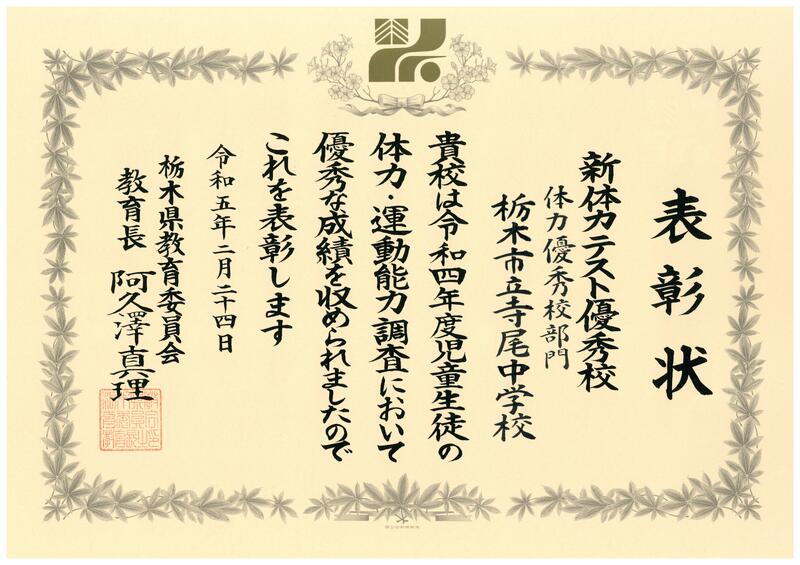 表彰状
新体力テスト優秀校
体力優秀校部門
栃木市立寺尾中学校
貴校は令和四年度児童生徒の
体力・運動能力調査において
優秀な成績を収められましたので
これを表彰します
令和五年二月二十四日
栃木県教育委員会
教育長 阿久澤真理